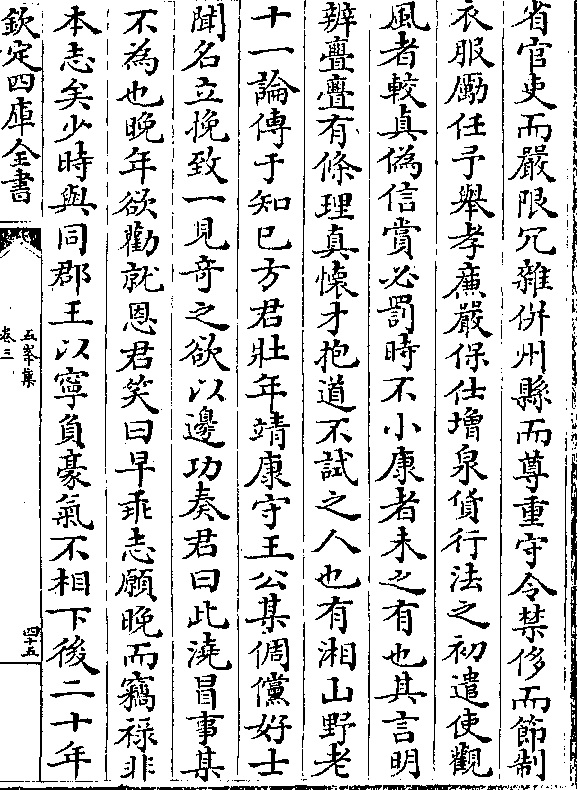 省官吏而嚴限冗雜併州縣而尊重守令禁侈而節制
衣服勵任子舉孝廉嚴保任增泉貨行法之初遣使觀
風者較真偽信賞必罰時不小康者未之有也其言明
辨亹亹有條理真懷才抱道不試之人也有湘山野老
十一論傳于知已方君壯年靖康守王公某倜儻好士
聞名立挽致一見竒之欲以邊功奏君曰此澆冒事某
不為也晚年欲勸就恩君笑曰早乖志願晚而竊禄非
本志矣少時與同郡王以寧負豪氣不相下後二十年
欽定四庫全書
五峯集
卷三
四十五